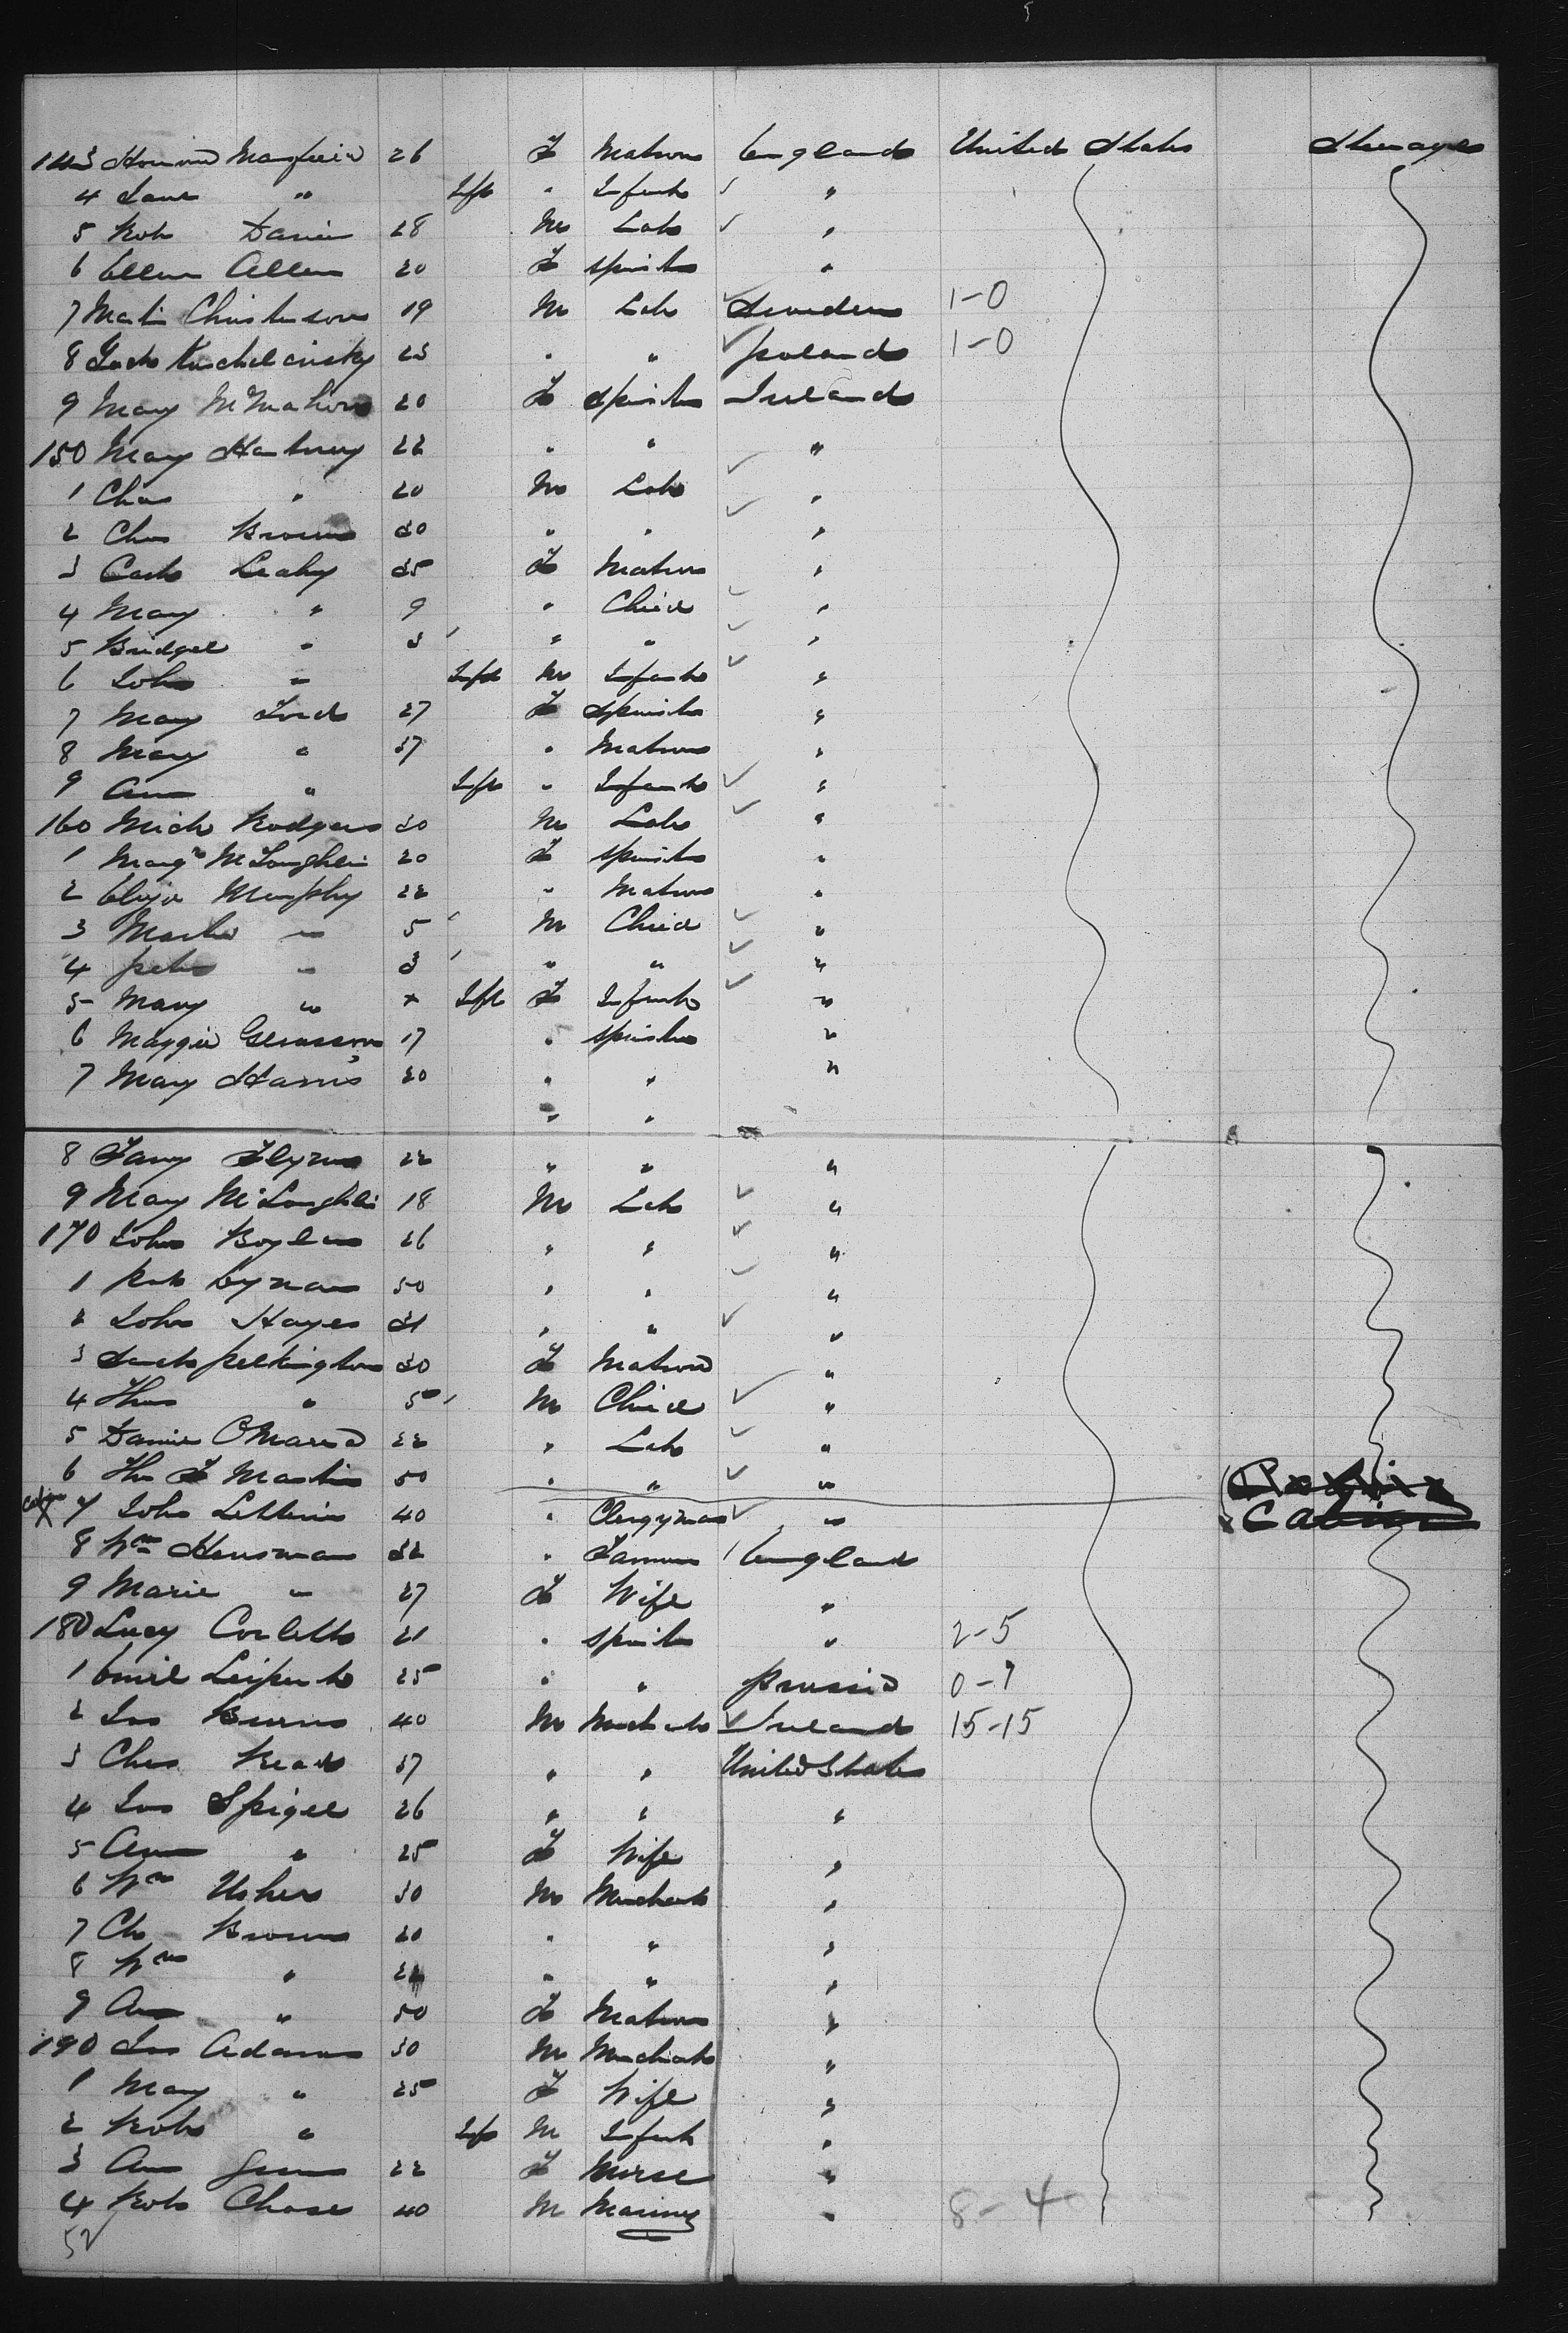 143 Mansfield 26 F Matron England United States Steerage
4 Jane " Inft " Infant "
5 Rob Daniel 28 M Lab "
6 Ellen Allen 20 F Spinster "
7 Martin Christenson 19 M Lab Sweden 1-0
8 23 " " Poland 1-0
9 Mary McMahon 20 F Spinster Ireland
150 Mary 22 " " "
1 Chas " 20 M Lab "
2 Chas Brown 30 " " "
3 Cath Leahy 35 F Matron "
4 Mary " 9 " Child "
5 Bridget " 3 " " "
6 John " Inft M Infant "
7 Mary Ford 27 F Spinster "
8 Mary " 37 " Matron "
9 Ann " Inft " Infant "
160 Mich Rodgers 30 M Lab "
1 Margt McLoughlin 20 F Spinster "
2 Eliza Murphy 22 " Matron "
3 " 5 M Child "
4 Peter " 3 " " "
5 Mary " Inft F Infant "
6 Maggie 17 " Spinster "
7 Mary Harris 20 " " "
" "
8 Flynn 22 " " "
9 Mary McLoughlin 18 M Lab "
170 John Boylan 26 " " "
1 50 " " "
2 John Hayes 21 " " "
3 Pilkington 30 F Matron "
4 Thos " 5 M Child "
5 Daniel 22 " Lab "
6 Tho F Martin 50 " " "
7 John 40 " Clergyman " Cabin
8 Wm Hensman 32 " Farmer England
9 Marie " 27 F Wife "
180 Lucy Corlett 21 " Spinster " 2-5
1 Emil 25 " " Prussia 0-7
2 Jas Burns 40 M Merchant Ireland 15-15
3 Chas Read 37 " " United States
4 Jas Spigel 26 " " "
5 Ann " 25 F Wife "
6 Wm Usher 30 M Merchant "
7 Ch Brown 20 " " "
8 Wm " " " "
9 Ann " 50 F Matron "
190 Jas Adams 30 M Merchant "
1 Mary " 25 F Wife "
2 Rob " Inft M Infant "
3 Ann 22 F Nurse "
4 Rob Chase 40 M Mariner " 8-4
52